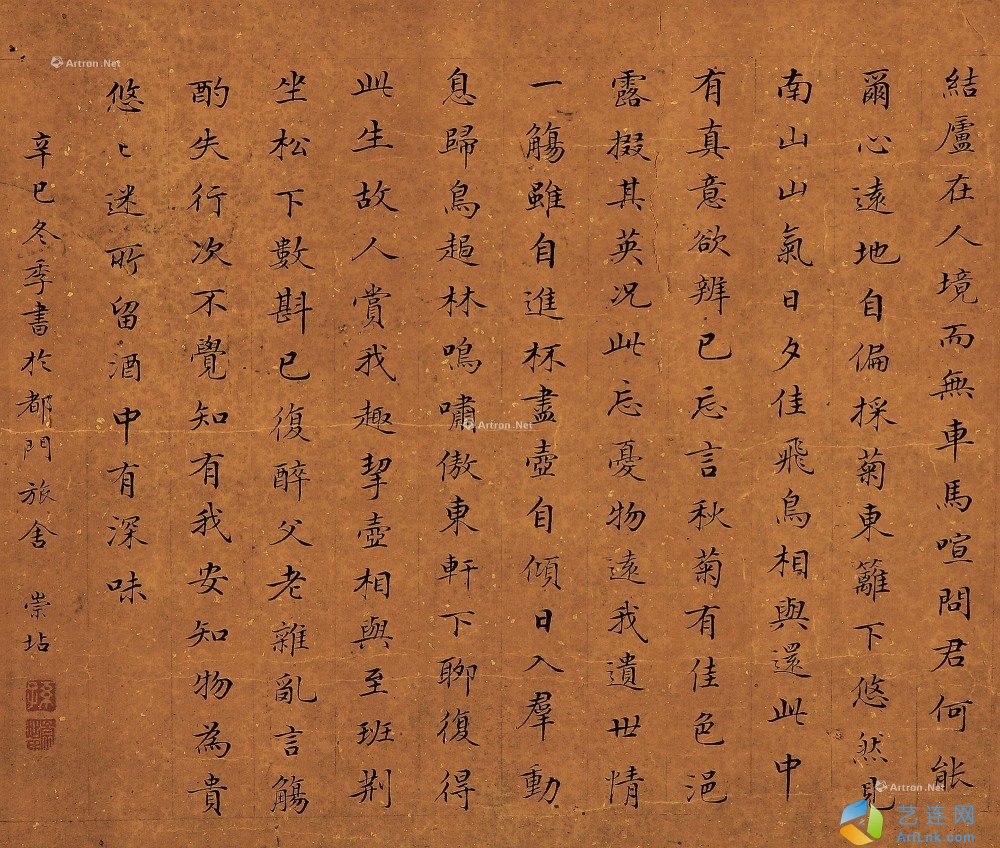 結廬在人境而無車馬喧問君何能
爾心遠地自偏採菊東籬下悠然見
南山山氣日夕佳飛鳥相與還此中
有真意欲辨已忘言秋菊有佳色浥
露掇其英況此忘憂物遠我遺世情
一觴雖自進杯盡壺自傾日入羣動
息歸鳥趨林鳴嘯傲東軒下聊復得
此生故人賞我趣挈壺相與至班荆
坐松下數斟已復醉父老雜亂言觴
酌失行次不覺知有我安知物為貴
悠〻迷所留酒中有深味
辛巳冬季書於都門旅舍 崇坫
Artron.Net
Artron.Net
Artron.Net
艺连网
ArtLnk.com